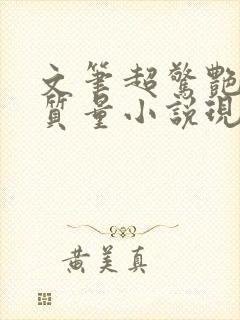 文筆超驚艷
質量小說現
黃美真